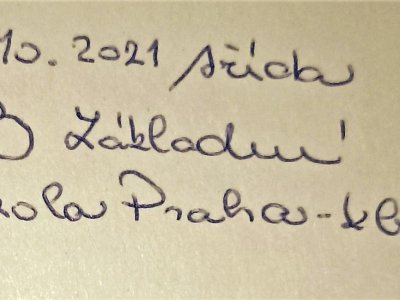 10. 2021 středa
3) Základní
kola Praha-kb